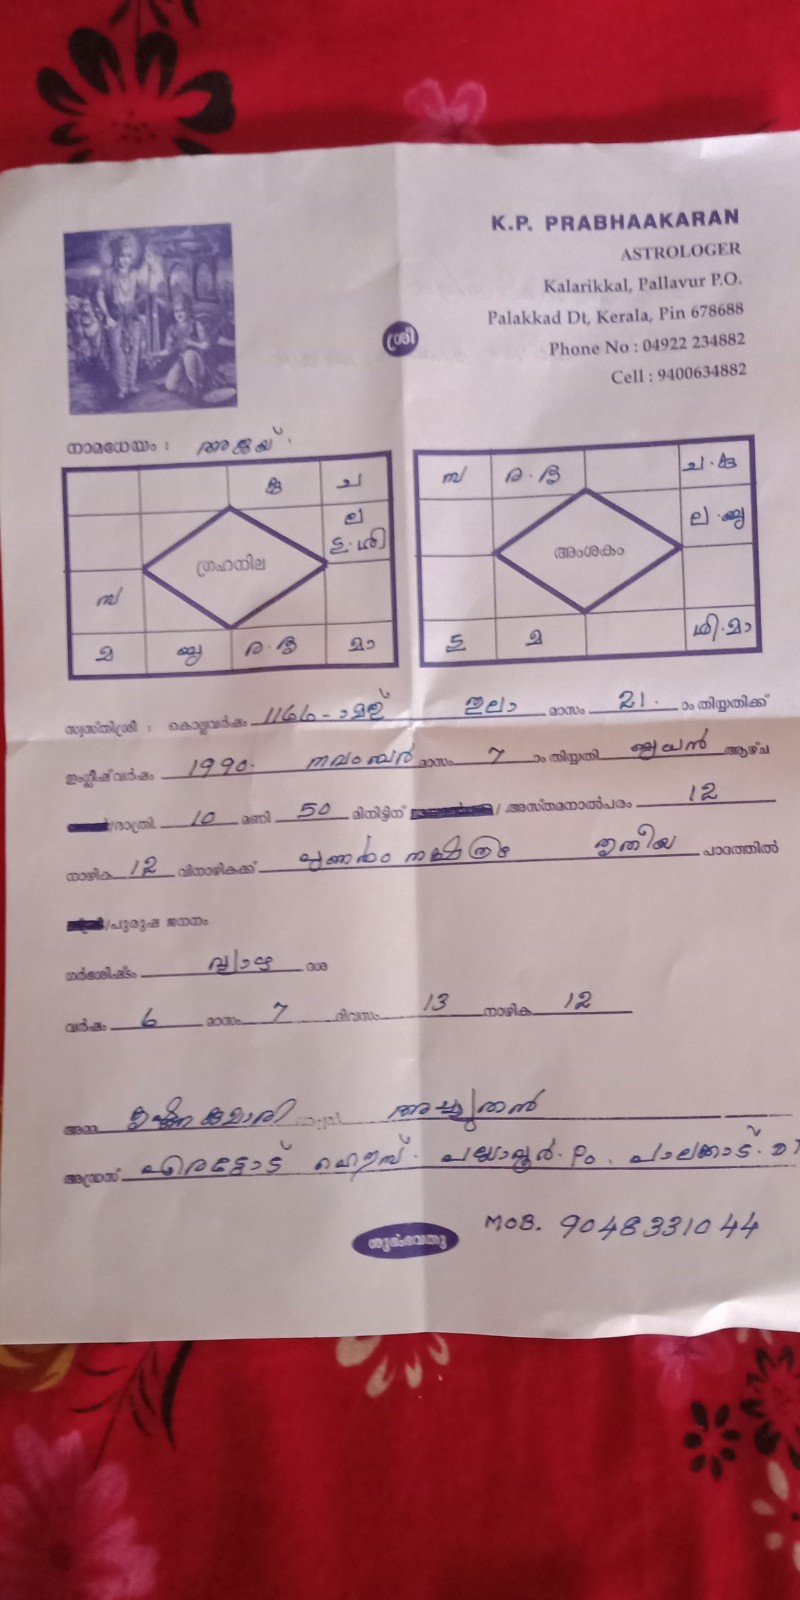 K.P. PRABHAAKARAN
ASTROLOGER
Kalarikkal, Pallavur P.O.
Palakkad Dt, Kerala, Pin 678688
Phone No : 04922 234882
Cell : 9400634882
ശ്രീ
നാമധേയം : അജയ്.
കു ച
ല
ഗു ശി
ഗ്രഹനില
സ
മ ബു ര മാ
സ ര ച കു
ല ബു
അംശകം
ഗു മ ശി മാ
സ്വസ്തിശ്രീ : കൊല്ലവർഷം 1166-ാമത് തുലാ മാസം 21. ാം തിയ്യതിക്ക്
ഇംഗ്ലീഷ് വർഷം 1990. നവംബർ മാസം 7 ാം തിയ്യതി ബുധൻ ആഴ്ച
/രാത്രി 10 മണി 50 മിനിട്ടിന് / അസ്തമനാൽപരം 12
നാഴിക 12 വിനാഴികക്ക് പുണർതം നക്ഷത്രം തൃതീയ പാദത്തിൽ
/പുരുഷ ജനനം
ഗർഭശിഷ്ടം വ്യാഴ ദശ
വർഷം 6 മാസം 7 ദിവസം 13 നാഴിക 12
അമ്മ കൃഷ്ണകുമാരി അച്ച്യുതൻ
അഡ്രസ് ഹൗസ്. പല്ലാവൂർ. Po. പാലക്കാട്. DT
ശുഭംഭവതു
MOB. 9048331044